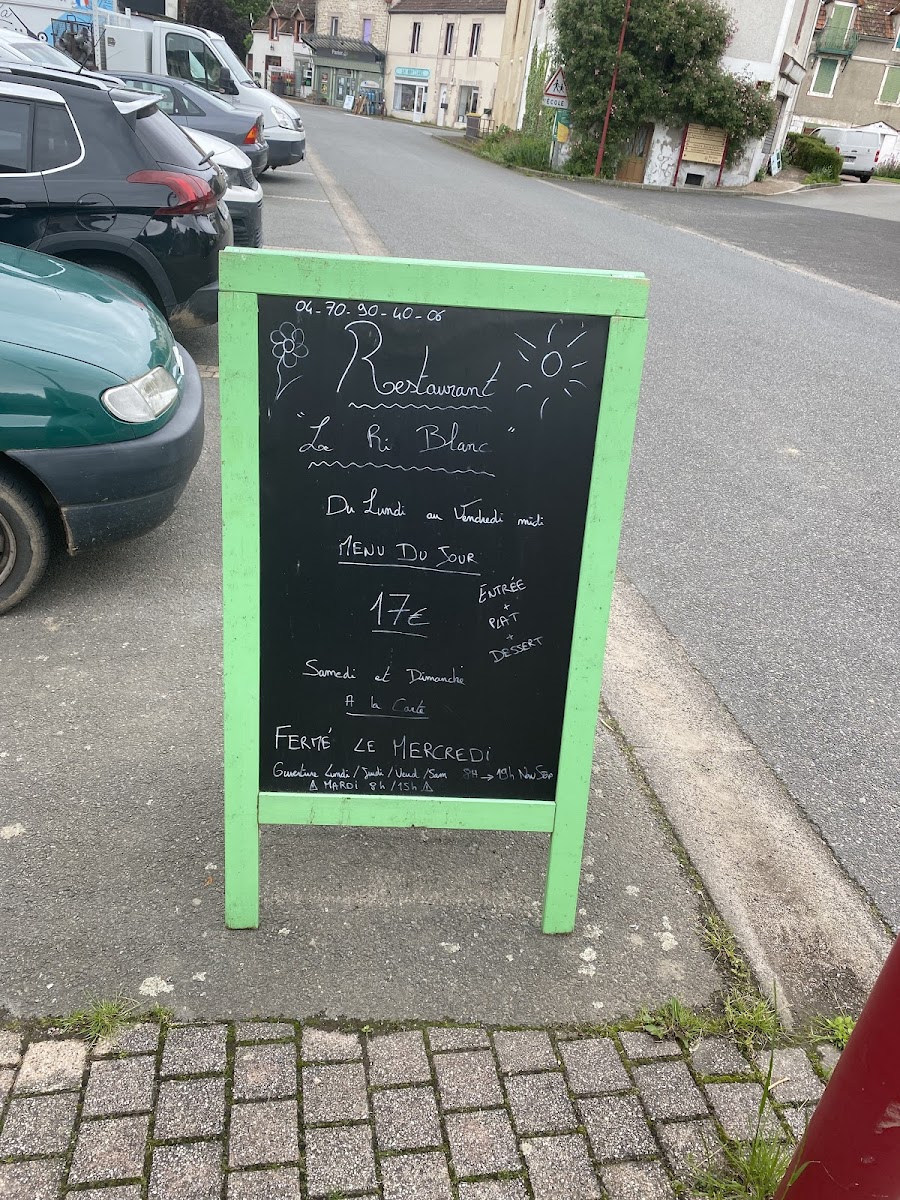 04-70-90-40-06
Restaurant
"Le Ri Blanc"
Du Lundi au Vendredi midi
MENU DU JOUR
17€
ENTRÉE
+
PLAT
+
DESSERT
Samedi et Dimanche
A la Carte
FERMÉ LE MERCREDI
Ouverture Lundi / Jeudi / Vend / Sam 8H → 19h Non Stop
MARDI 8h / 15h
ÉCOLE